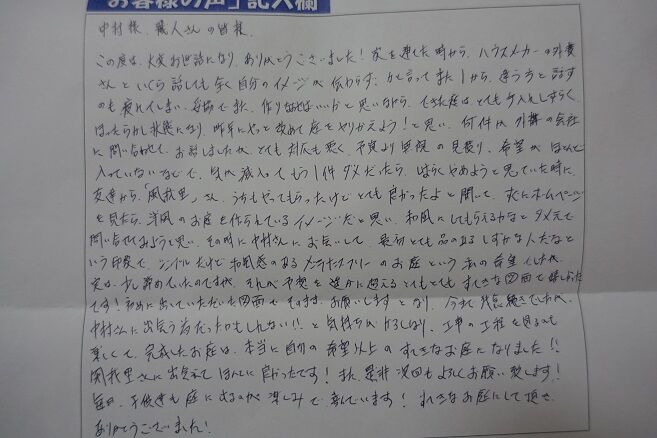 お客様の声」記入欄
中村様、職人さんの皆様、
この度は、大変お世話になり、ありがとうございました！家を建てた時から、ハウスメーカーの外構
さんといくら話しても全く自分のイメージが伝わらず、かと言ってまた1から、違う方と話す
のも疲れてしまい、自分でまた、作りなおせばいいかと思いながら、できた庭は、とても手入れしずらく、
ほったらかし状態になり、昨年にやっと改めて庭をやりかえよう！と思い、何件か外構の会社
に問い合わせて、お話しましたが、とても対応も悪く、予算より 見積り、希望がほとんど
入っていないなどで、気が滅入ってもう1件ダメだったら、しばらくやめようと思っていた時に、
友達から、「風我里」さん、うちもやってもらったけどとても良かったよと聞いて、すぐにホームページ
を見たら、洋風のお庭を作られているイメージだと思い、和風にしてもらえるかなとダメ元で
問い合せてみようと思い、その時に中村さんにお会いして、最初とても品のあるしずかな人だなと
いう印象で、シンプルだけど和風感のある ツリーのお庭という私の希望でしたが、
実は、少し諦めていたのですが、それが予想を遥かに超えるとてもとてもすてきな図面で嬉しかった
です！初めに出していただいた図面でそのまま、お願いしますとなり、今まで残念続きでしたが、
中村さんに出会う為だったのかもしれない!!と気持ちが 、工事の工程を見るのも
楽しくて、完成したお庭は、本当に自分の希望以上のすてきなお庭になりました!!
風我里さんに出会えてほんとに良かったです！また、是非次回もよろしくお願い致します！
毎日、子供達も庭に出るのが楽しみで喜んでいます！すてきなお庭にして頂き、
ありがとうございました！